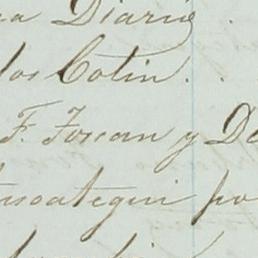 a Diario
los Cotin.
F. Foscan y D
uscategui po